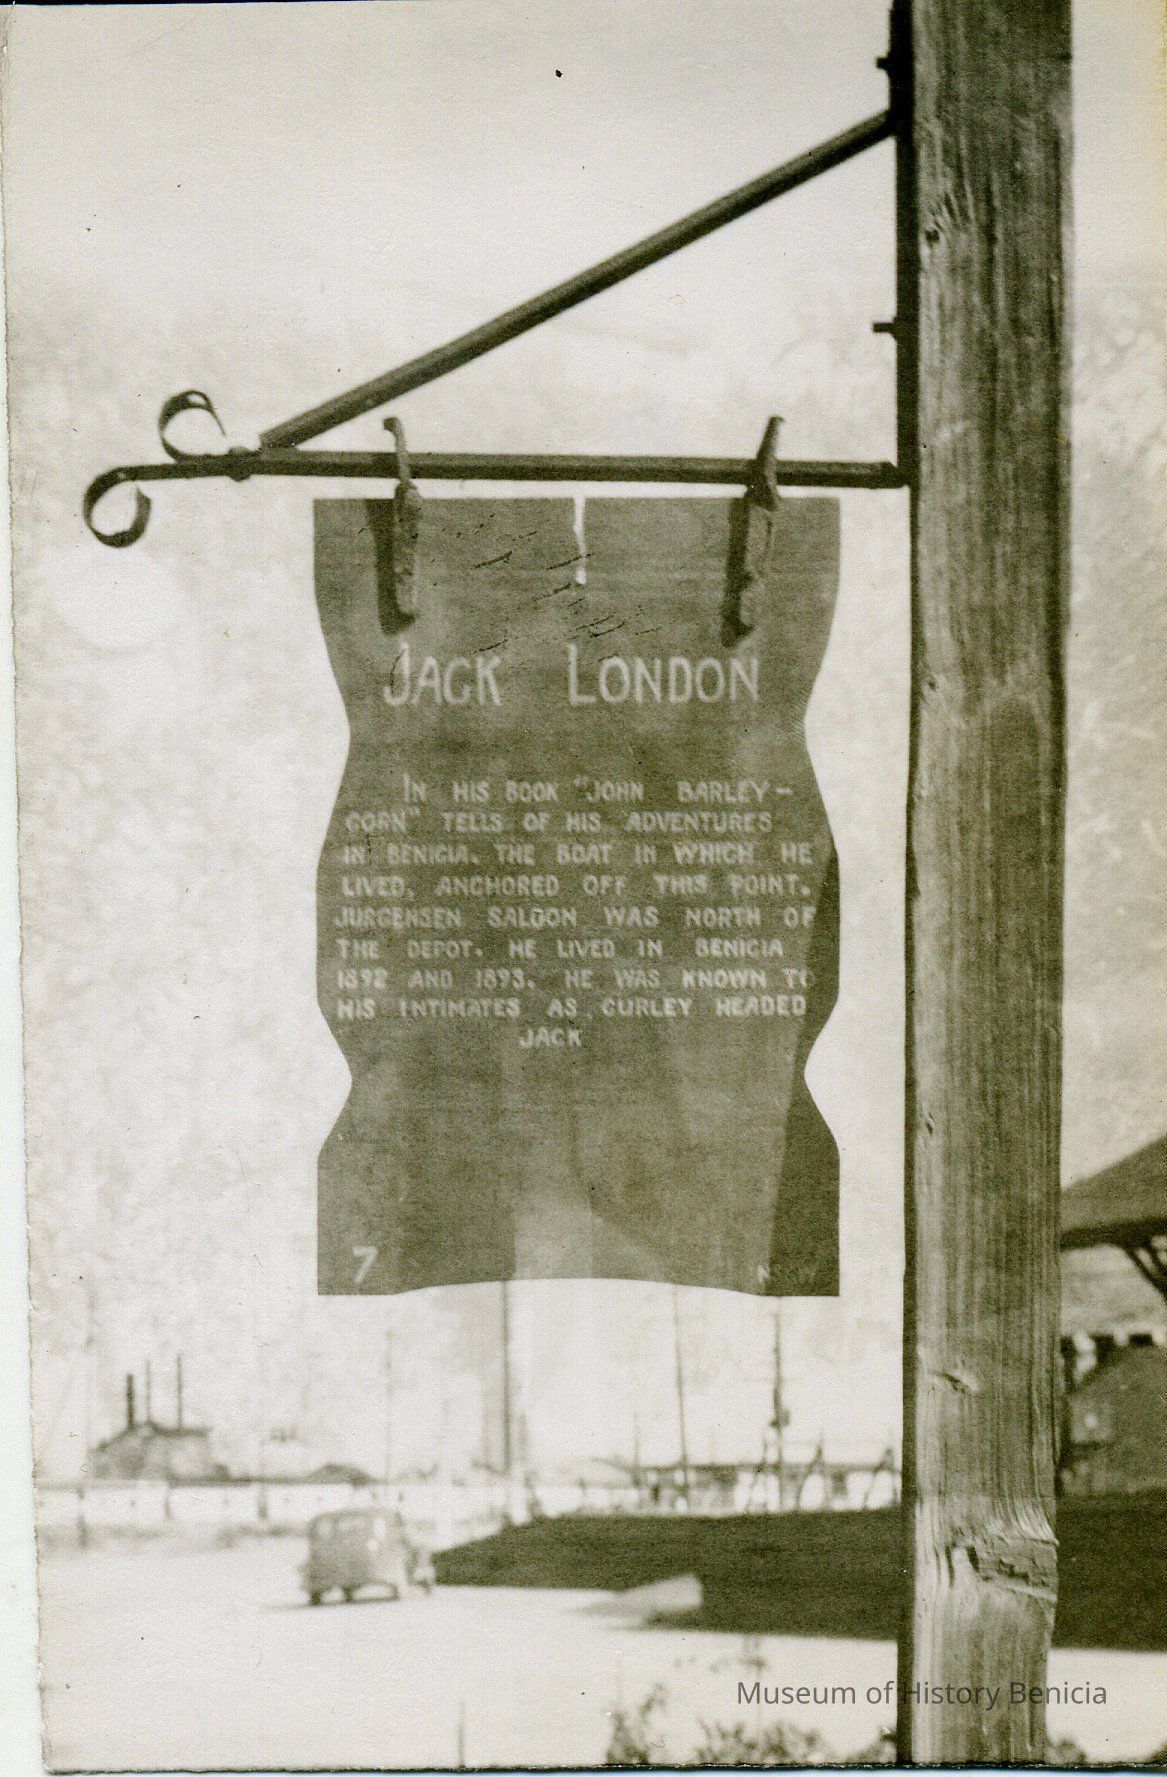 JACK LONDON
IN HIS BOOK "JOHN BARLEY-
CORN" TELLS OF HIS ADVENTURES
IN BENICIA. THE BOAT IN WHICH HE
LIVED, ANCHORED OFF THIS POINT.
JURGENSEN SALOON WAS NORTH OF
THE DEPOT. HE LIVED IN BENICIA
1892 AND 1893. HE WAS KNOWN TO
HIS INTIMATES AS CURLEY HEADED
JACK
7
Museum of History Benicia